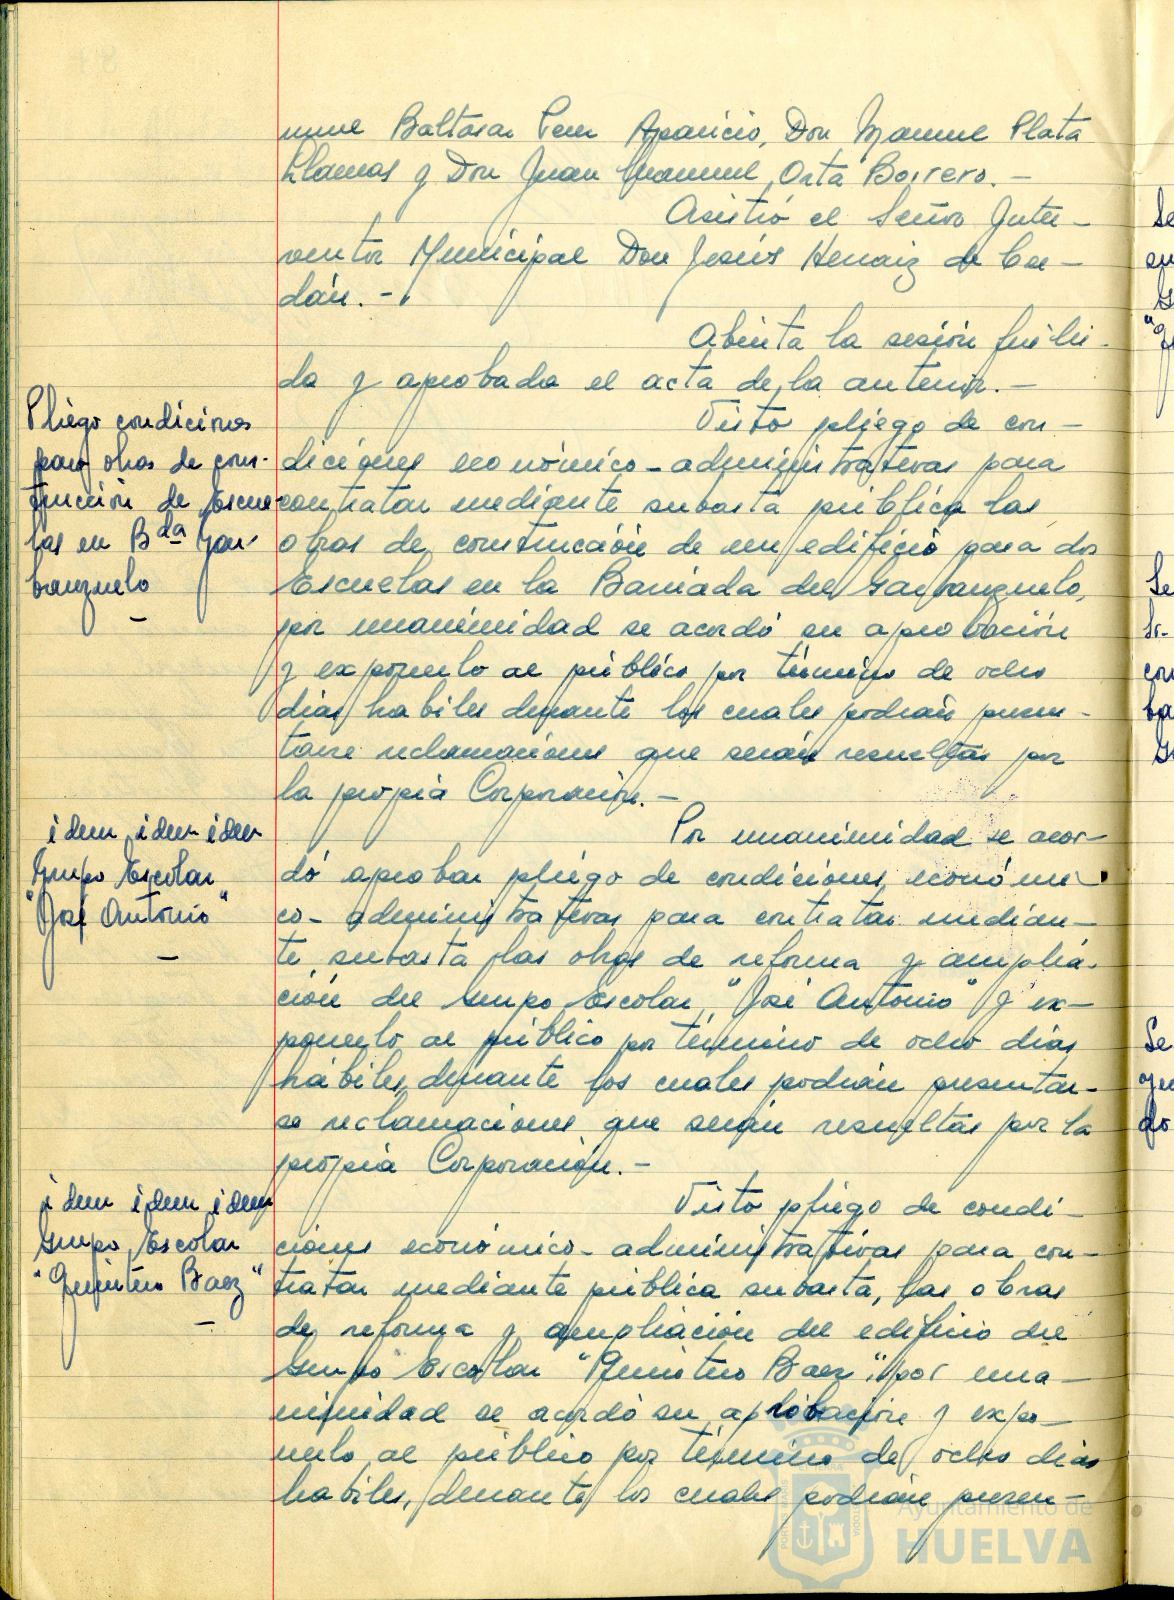 nuel Baltasar Pérez Aparicio, Don Manuel Plata
Llamas y Don Juan Manuel Orta Borrero.—
Asistió el Señor Inter-
ventor Municipal Don Jesús Henaiz de
dán.—
Abierta la sesión fué leí-
da y aprobada el acta de la anterior.—
Pliego condiciones
para obras de cons-
trucción de Escue-
las en Bda Gar-
banzuelo
Visto pliego de con-
diciones económico-administrativas para
contratar mediante subasta pública las
obras de construcción de un edificio para dos
Escuelas en la Barriada del Garbanzuelo,
por unanimidad se acordó su aprobación
y exponerlo al público por término de ocho
días habiles durante los cuales podrán presen-
tarse reclamaciones que serán resueltas por
la propia Corporación.—
idem idem idem
Grupo Escolar
"José Antonio"
Por unanimidad se acor-
dó aprobar pliego de condiciones económi-
co-administrativas para contratar median-
te subasta las obras de reforma y amplia-
ción del Grupo Escolar "José Antonio" y ex-
ponerlo al público por término de ocho días
hábiles, durante los cuales podrán presentar-
se reclamaciones que serán resueltas por la
propia Corporación.—
idem idem idem
Grupo Escolar
"Quintero Baez"
Visto pliego de condi-
ciones económico-administrativas para con-
tratar mediante pública subasta, las obras
de reforma y ampliación del edificio del
Grupo Escolar "Quintero Baez", por una-
nimidad se acordó su aprobación y expo-
nerlo al público por término de ocho dias
habiles, durante los cuales podrán presen-
Ayuntamiento de
HUELVA